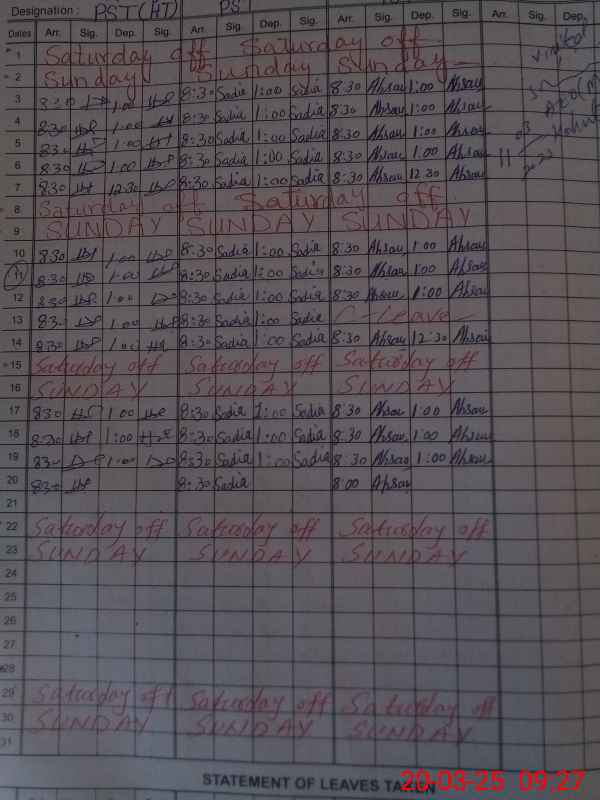 Designation : PST (HT) PST
Dates Arr. Sig. Dep. Sig. Arr. Sig. Dep. Sig. Arr. Sig. Dep. Sig. Arr. Sig. Dep.
1 Saturday off Saturday off
2 Sunday Sunday Sunday
3 8:30 1:00 8:30 Sadia 1:00 Sadia 8:30 Ahsan 1:00 Ahsan
4 8:30 1:00 8:30 Sadia 1:00 Sadia 8:30 Ahsan 1:00 Ahsan
5 8:30 1:00 8:30 Sadia 1:00 Sadia 8:30 Ahsan 1:00 Ahsan
6 8:30 1:00 8:30 Sadia 1:00 Sadia 8:30 Ahsan 1:00 Ahsan
7 8:30 12:30 8:30 Sadia 1:00 Sadia 8:30 Ahsan 12:30 Ahsan
8 Saturday off Saturday off
9 SUNDAY SUNDAY SUNDAY
10 8:30 1:00 8:30 Sadia 1:00 Sadia 8:30 Ahsan 1:00 Ahsan
11 8:30 1:00 8:30 Sadia 1:00 Sadia 8:30 Ahsan 1:00 Ahsan
12 8:30 1:00 8:30 Sadia 1:00 Sadia 8:30 Ahsan 1:00 Ahsan
13 8:30 1:00 8:30 Sadia 1:00 Sadia C-Leave
14 8:30 1:00 8:30 Sadia 1:00 Sadia 8:30 Ahsan 12:30 Ahsan
15 Saturday off Saturday off Saturday off
16 SUNDAY SUNDAY SUNDAY
17 8:30 1:00 8:30 Sadia 1:00 Sadia 8:30 Ahsan 1:00 Ahsan
18 8:30 1:00 8:30 Sadia 1:00 Sadia 8:30 Ahsan 1:00 Ahsan
19 8:30 1:00 8:30 Sadia 1:00 Sadia 8:30 Ahsan 1:00 Ahsan
20 8:30 8:30 Sadia 8:00 Ahsan
21
22 Saturday off Saturday off Saturday off
23 SUNDAY SUNDAY SUNDAY
24
25
26
27
28
29 Saturday off Saturday off Saturday off
30 SUNDAY SUNDAY SUNDAY
31
STATEMENT OF LEAVES TAKEN
20-03-25 09:27